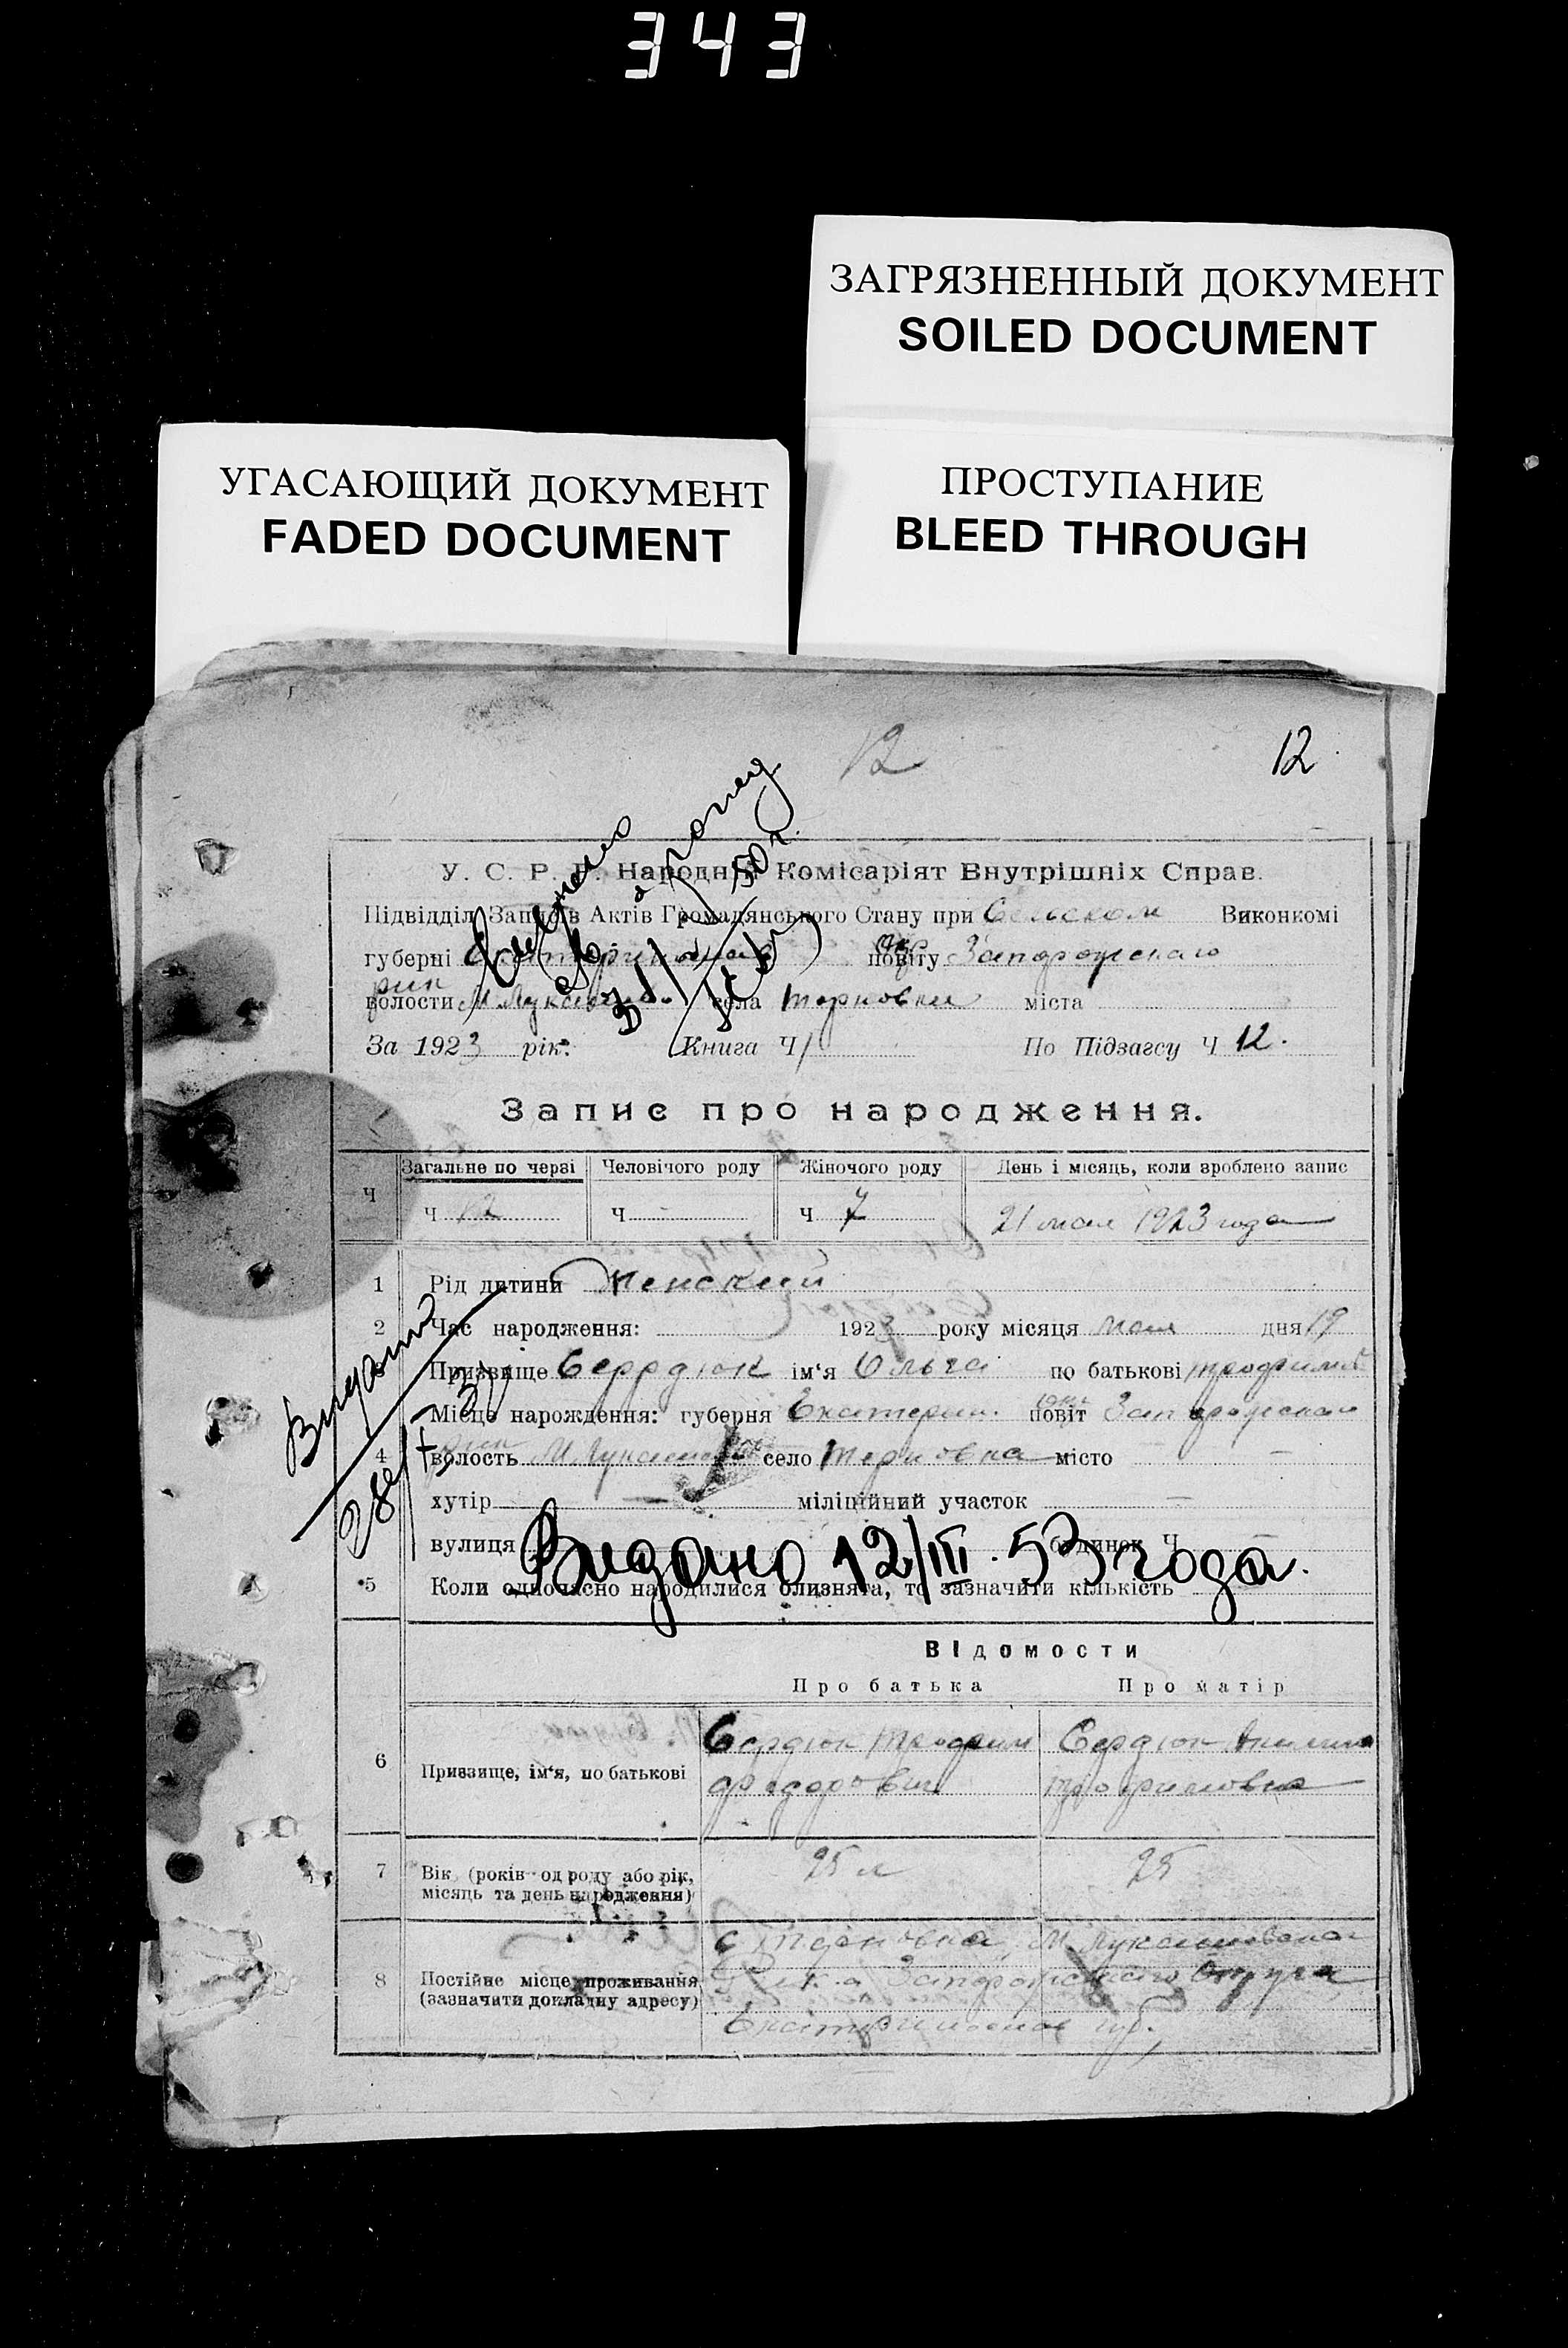 343
ЗАГРЯЗНЕННЫЙ ДОКУМЕНТ
SOILED DOCUMENT
УГАСАЮЩИЙ ДОКУМЕНТ
FADED DOCUMENT
ПРОСТУПАНИЕ
BLEED THROUGH
12 12
У. С. Р. Р. Народній Комісаріят Внутрішніх Справ.
Підвідділ Записів Актів Громадянського Стану при Сельском Виконкомі
губерні повіту Запорожскаго
волости села Терновки міста
За 1923 рік. Книга Ч 1 По Підзагсу Ч 12.
Запис про народження.
Ч Загальне по черзі Человічого роду Жіночого роду День і місяць, коли зроблено запис
Ч 12 Ч - Ч 7 21 мая 1923 года
1 Рід дитини Женский
2 Час народження: 1923 року місяця мая дня 19
3 Призвіще Сердюк ім'я Ольга по батькові Трофимов
Місце нарождення: губерня Екатерин. повіт Запорожскаго
4 волость село Терновка місто —
хутір — міліційний участок —
вулиця будинок Ч —
Видано 12/III. 53 года.
5 Коли одночасно народилися близнята, то зазначити кількість
Видано
Відомости
Про батька Про матір
6 Призвище, ім'я, по батькові Сердюк Трофим Сердюк
Федорович Трофимовна
7 Вік (років од роду або рік, 25 л 25
місяць та день народження)
с Терновка М Лукашевскаго
8 Постійне місце проживання Запорожскаго Округа
(зазначити докладну адресу)
Екатеринослав губ.